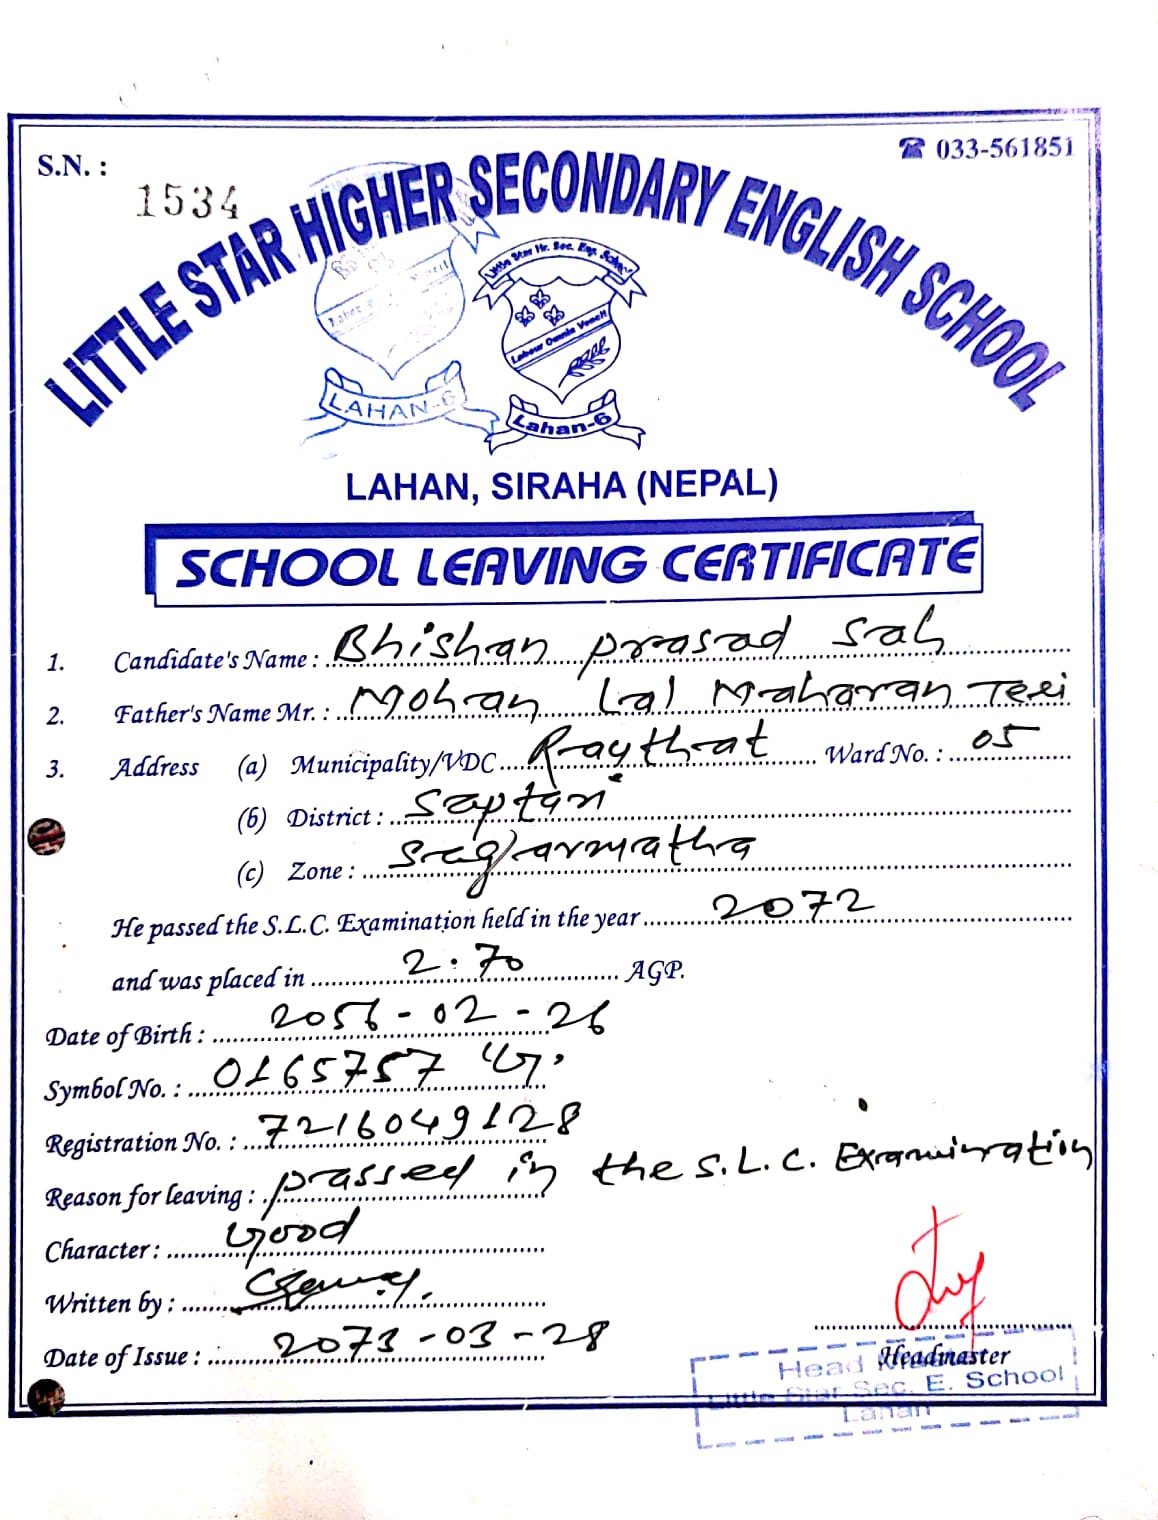 S.N. :
1534
☎ 033-561851
LITTLE STAR HIGHER SECONDARY ENGLISH SCHOOL
Little Star Hr. Sec. Eng. School
Labour Omnia Vencit
LAHAN-6
Lahan-6
LAHAN, SIRAHA (NEPAL)
SCHOOL LEAVING CERTIFICATE
1. Candidate's Name : Bhishan prasad sah
2. Father's Name Mr. : Mohan Lal Maharan Teli
3. Address (a) Municipality/VDC Ward No. : 05
(b) District : Saptari
(c) Zone : Sagarmatha
He passed the S.L.C. Examination held in the year 2072
and was placed in 2.70 AGP.
Date of Birth : 2056-02-26
Symbol No. : 0165757
Registration No. : 7216049128
Reason for leaving : passed in the S.L.C. Examination
Character : Good
Written by :
Date of Issue : 2073-03-28
Headmaster
Head
Little Star Sec. E. School
Lahan